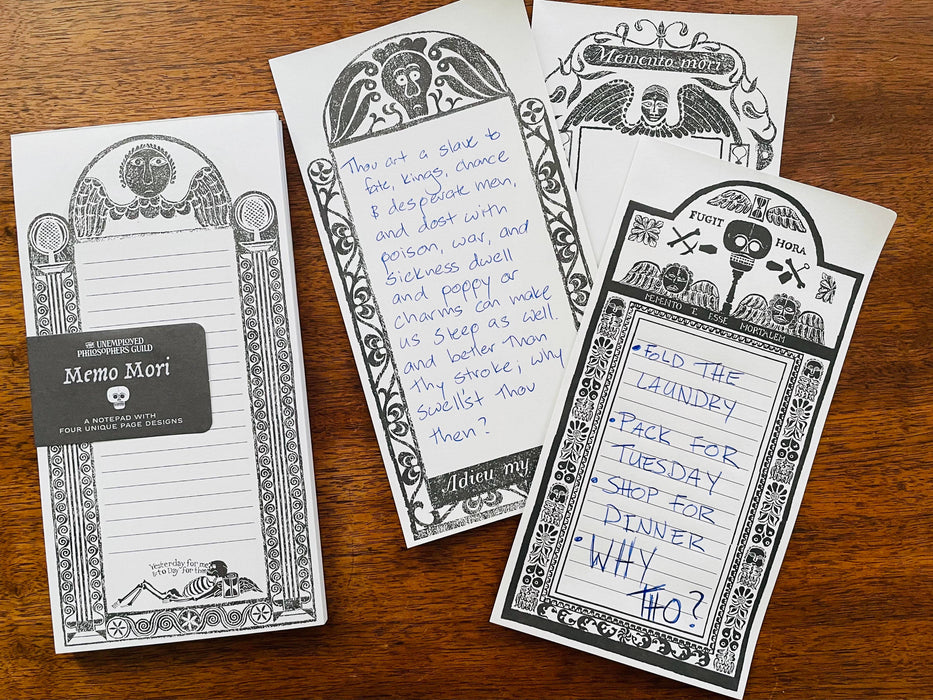 THE UNEMPLOYED
PHILOSOPHERS GUILD
Memo Mori
A NOTEPAD WITH
FOUR UNIQUE PAGE DESIGNS
Yesterday for me
& to Day for thee
Thou art a slave to
fate, kings, chance
& desperate men,
and dost with
poison, war, and
sickness dwell
and poppy or
charms can make
us sleep as well
and better than
thy stroke; why
swell'st thou
then?
Adieu my
Memento mori
FUGIT
HORA
MEMENTO TE ESSE MORTALEM
• FOLD THE
LAUNDRY
• PACK FOR
TUESDAY
• SHOP FOR
DINNER
• WHY
THO?